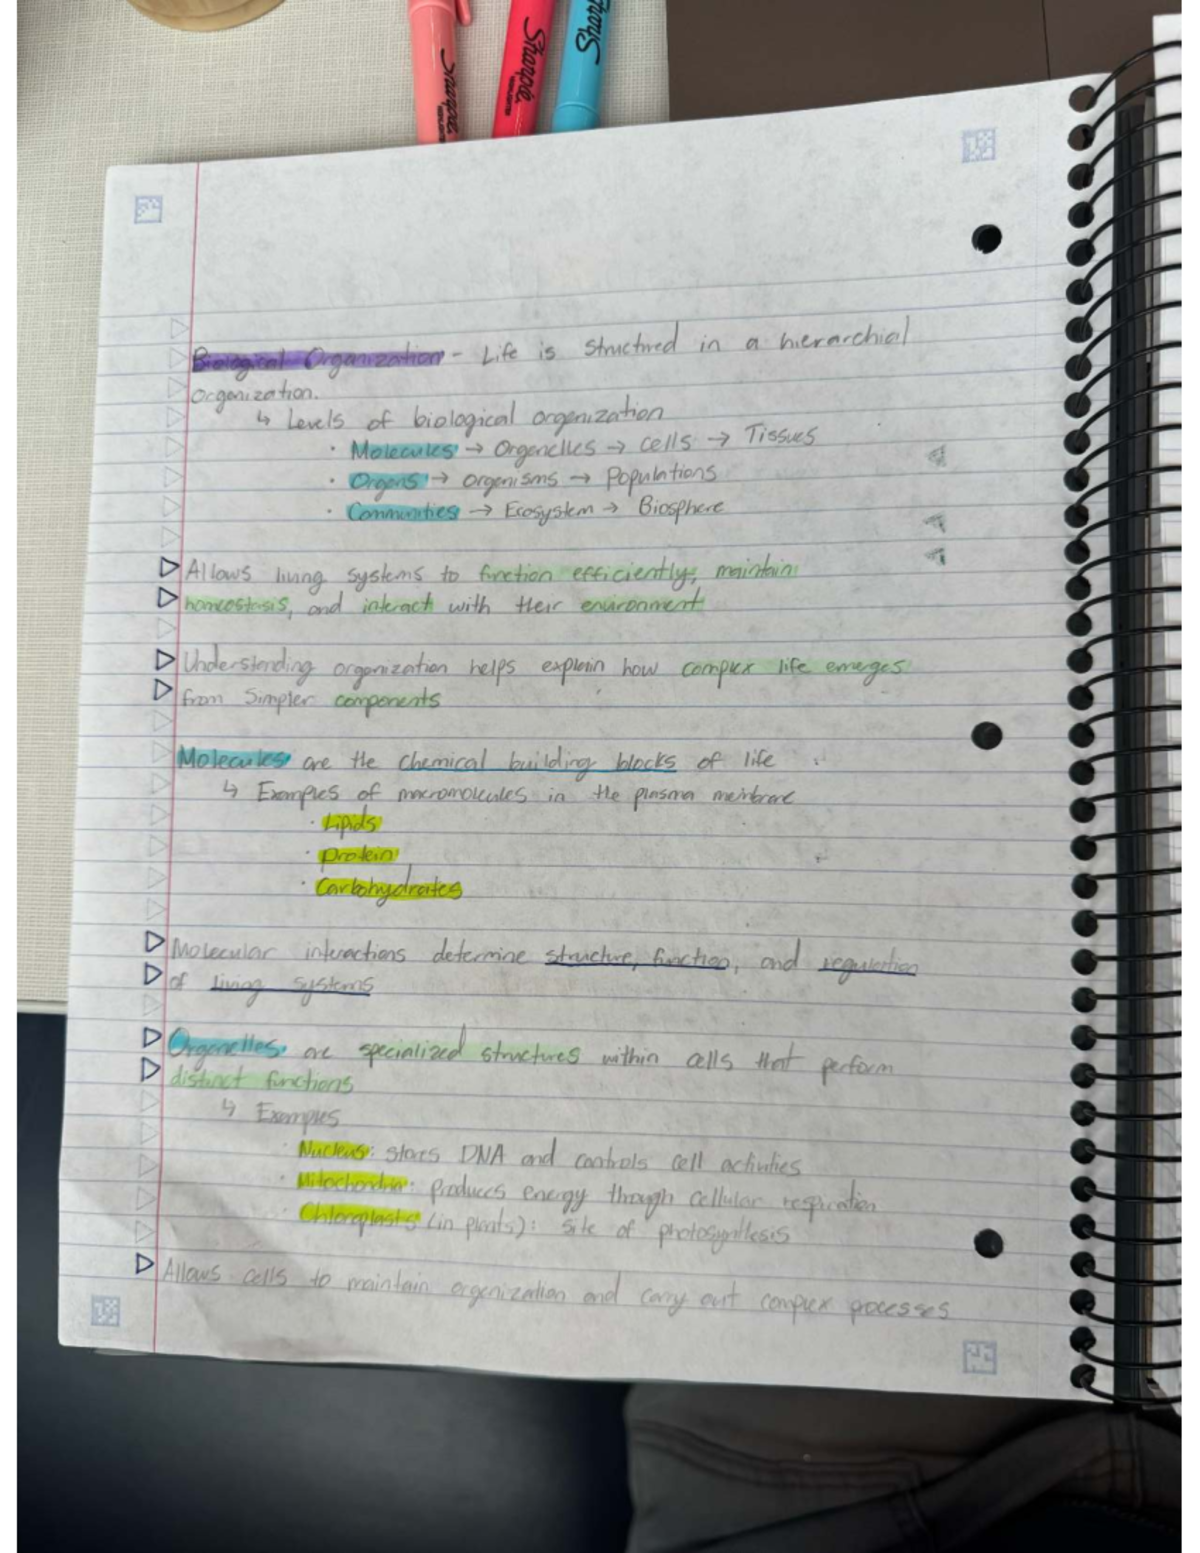 Sharpie
Sharpie
HIGHLIGHTER
Sharpie
Biological Organization - Life is structured in a hierarchial
organization.
↳ Levels of biological organization
· Molecules → Organelles → cells → Tissues
· Organs → organisms → Populations
· Communities → Ecosystem → Biosphere
Allows living systems to function efficiently, maintain
homeostasis, and interact with their environment
Understanding organization helps explain how complex life emerges
from simpler components
Molecules are the chemical building blocks of life
↳ Examples of macromolecules in the plasma membrane
· Lipids
· Protein
· Carbohydrates
Molecular interactions determine structure, function, and regulation
of living systems
Organelles are specialized structures within cells that perform
distinct functions
↳ Examples
· Nucleus: stores DNA and controls cell activities
· Mitochondria: produces energy through cellular respiration
· Chloroplasts (in plants): site of photosynthesis
Allows cells to maintain organization and carry out complex processes